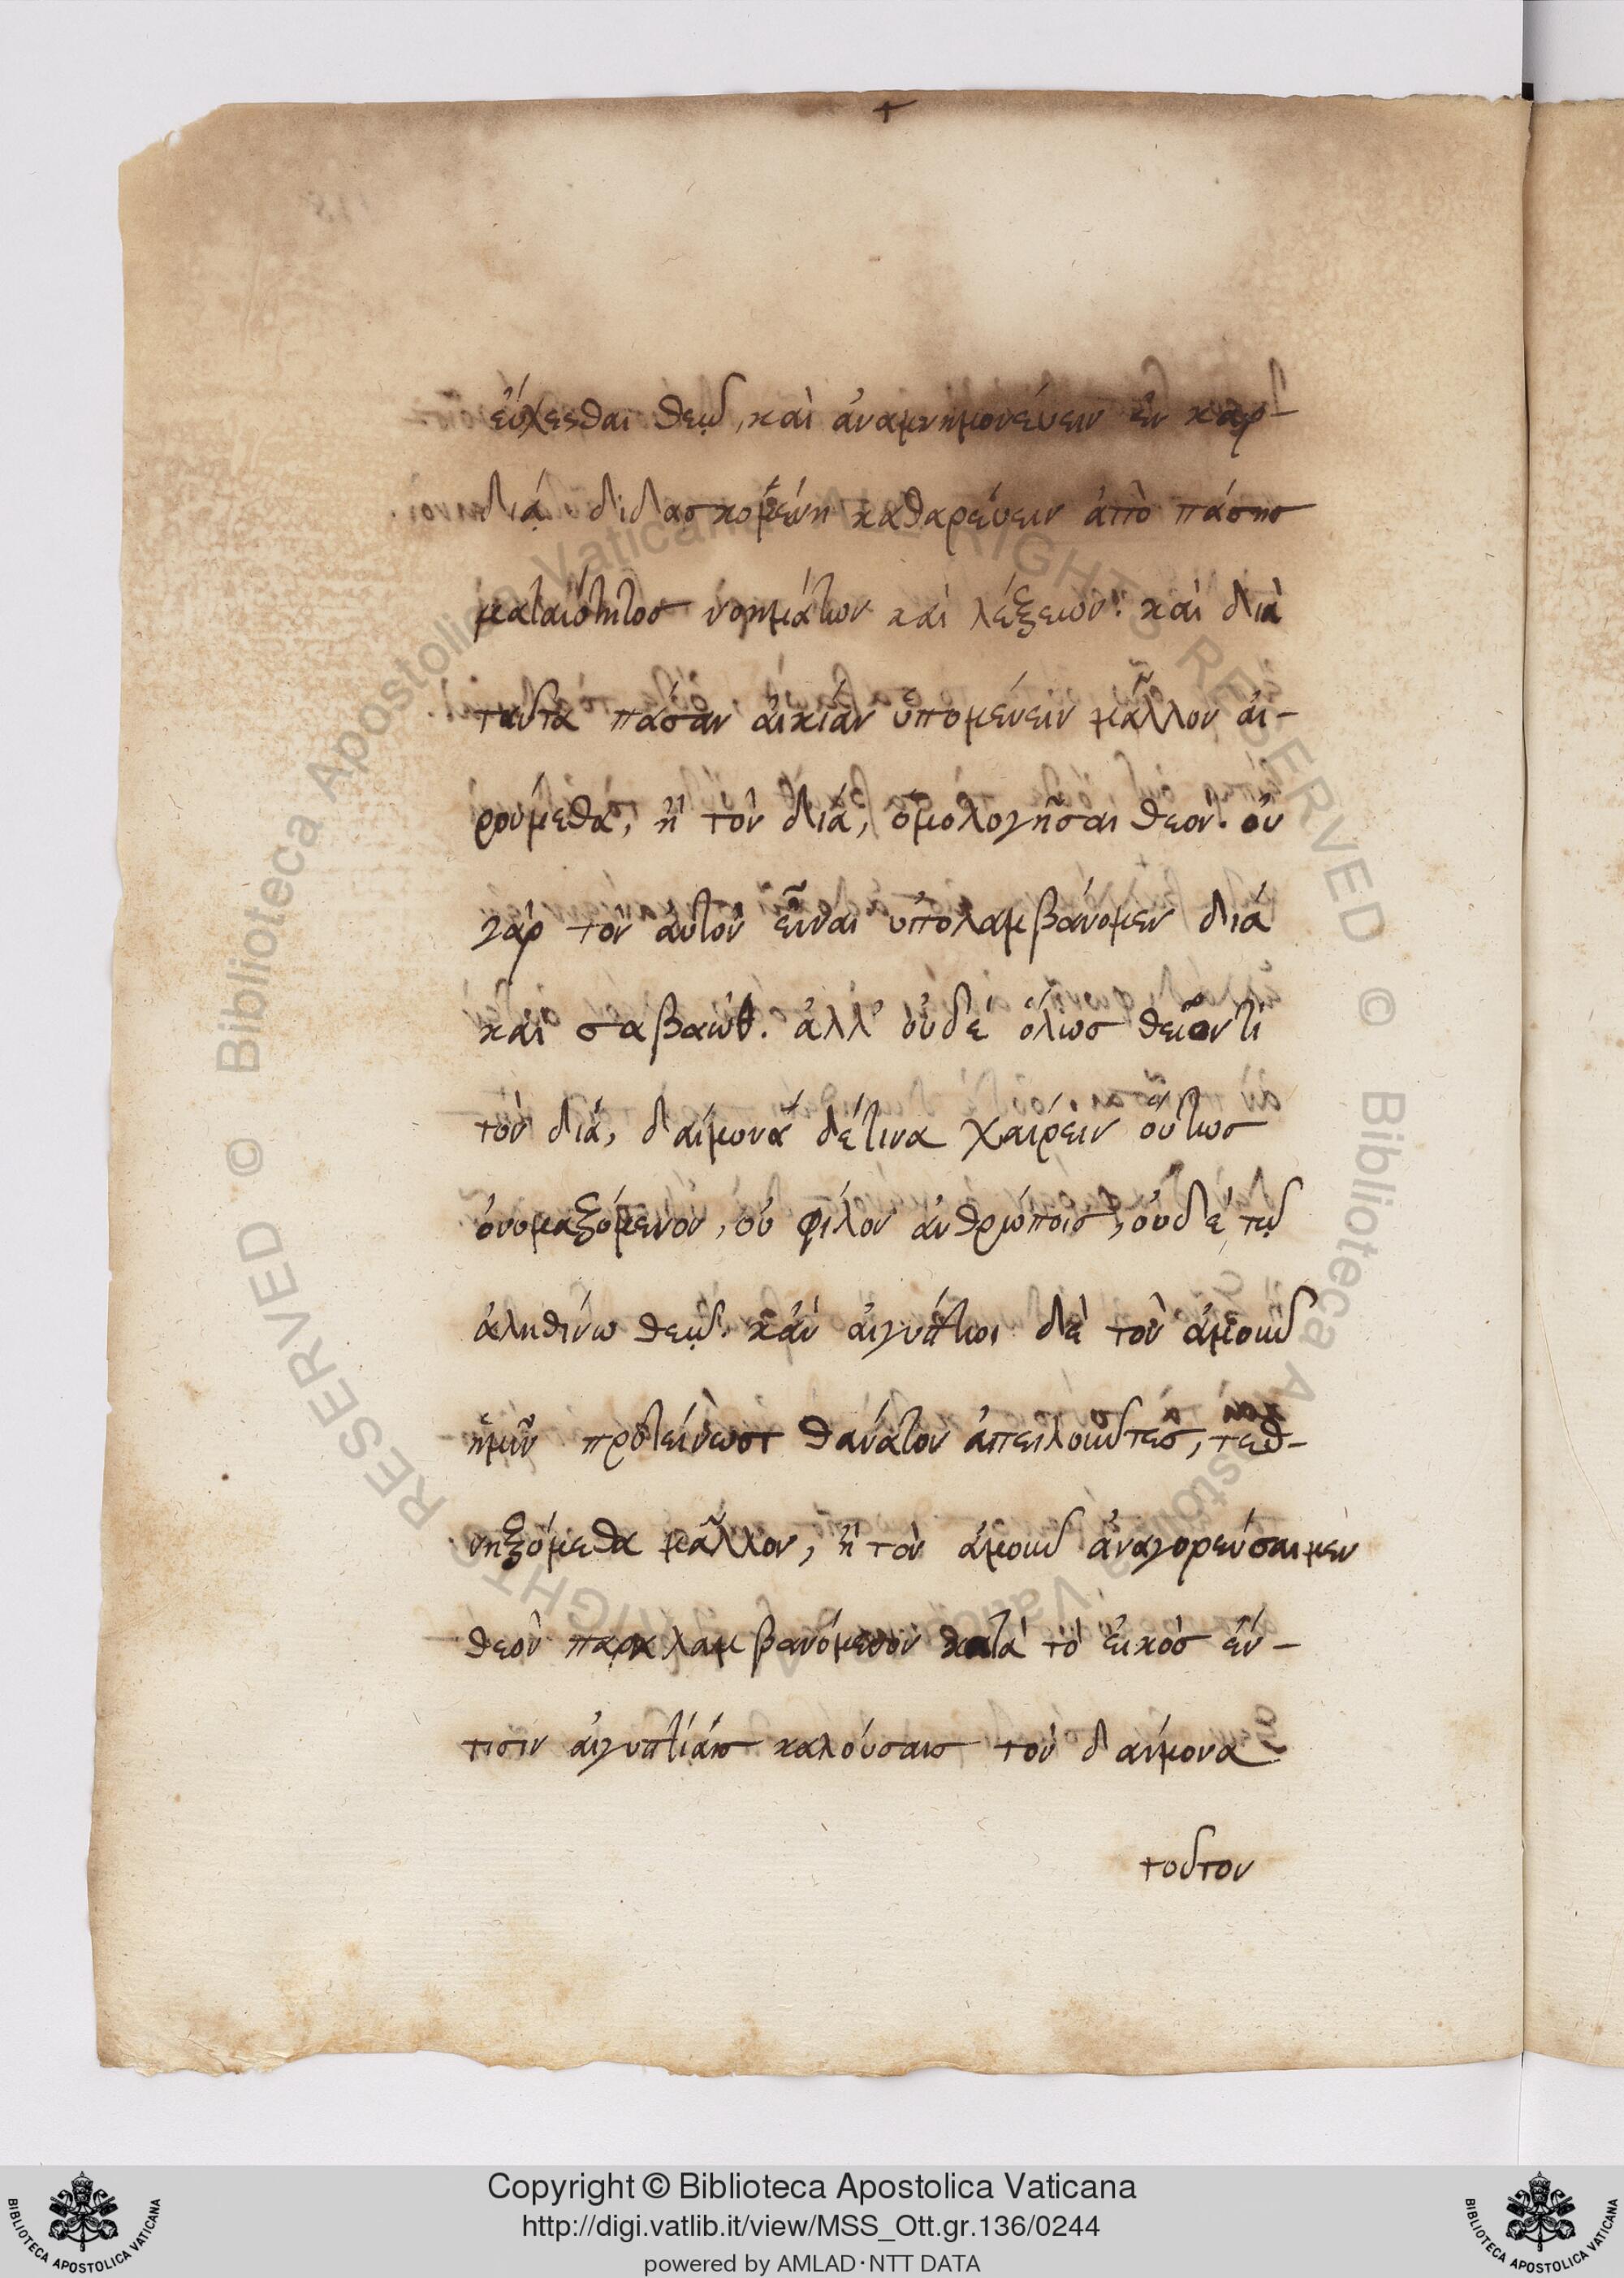 εὔχεσθαι θεῶ, καὶ ἀναμνημονεύειν ἐν καρ-
δίᾳ διδασκομένη καθαρεύειν ἀπὸ πάσης
ματαιότητος νοημάτων καὶ λέξεων. καὶ διὰ
ταῦτα πᾶσαν αἰκίαν ὑπομένειν μᾶλλον αἱ-
ρούμεθα, ἢ τὸν δία, ὁμολογῆσαι θεόν. οὐ
γὰρ τὸν αὐτὸν εἶναι ὑπολαμβάνομεν δία
καὶ σαβαώθ. ἀλλ' οὐδὲ ὅλως θεῖόν τι
τὸν δία, δαίμονα δέ τινα χαίρειν οὕτως
ὀνομαζόμενον, οὐ φίλον ἀνθρώποις, οὐδὲ τῷ
ἀληθινῶ θεῶ. κἂν αἰγύπτιοι δὲ τὸν ἀμοῦν
ἡμῖν προτείνωσι θάνατον ἀπειλοῦντες, τεθ-
νηξόμεθα μᾶλλον, ἢ τὸν ἀμοῦν ἀναγορεύσαιμεν
θεὸν παραλαμβανόμενον κατὰ τὸ εἰκὸς ἔν-
τισιν αἰγυπτίαις καλούσαις τὸν δαίμονα
τοῦτον
Copyright © Biblioteca Apostolica Vaticana
http://digi.vatlib.it/view/MSS_Ott.gr.136/0244
powered by AMLAD·NTT DATA